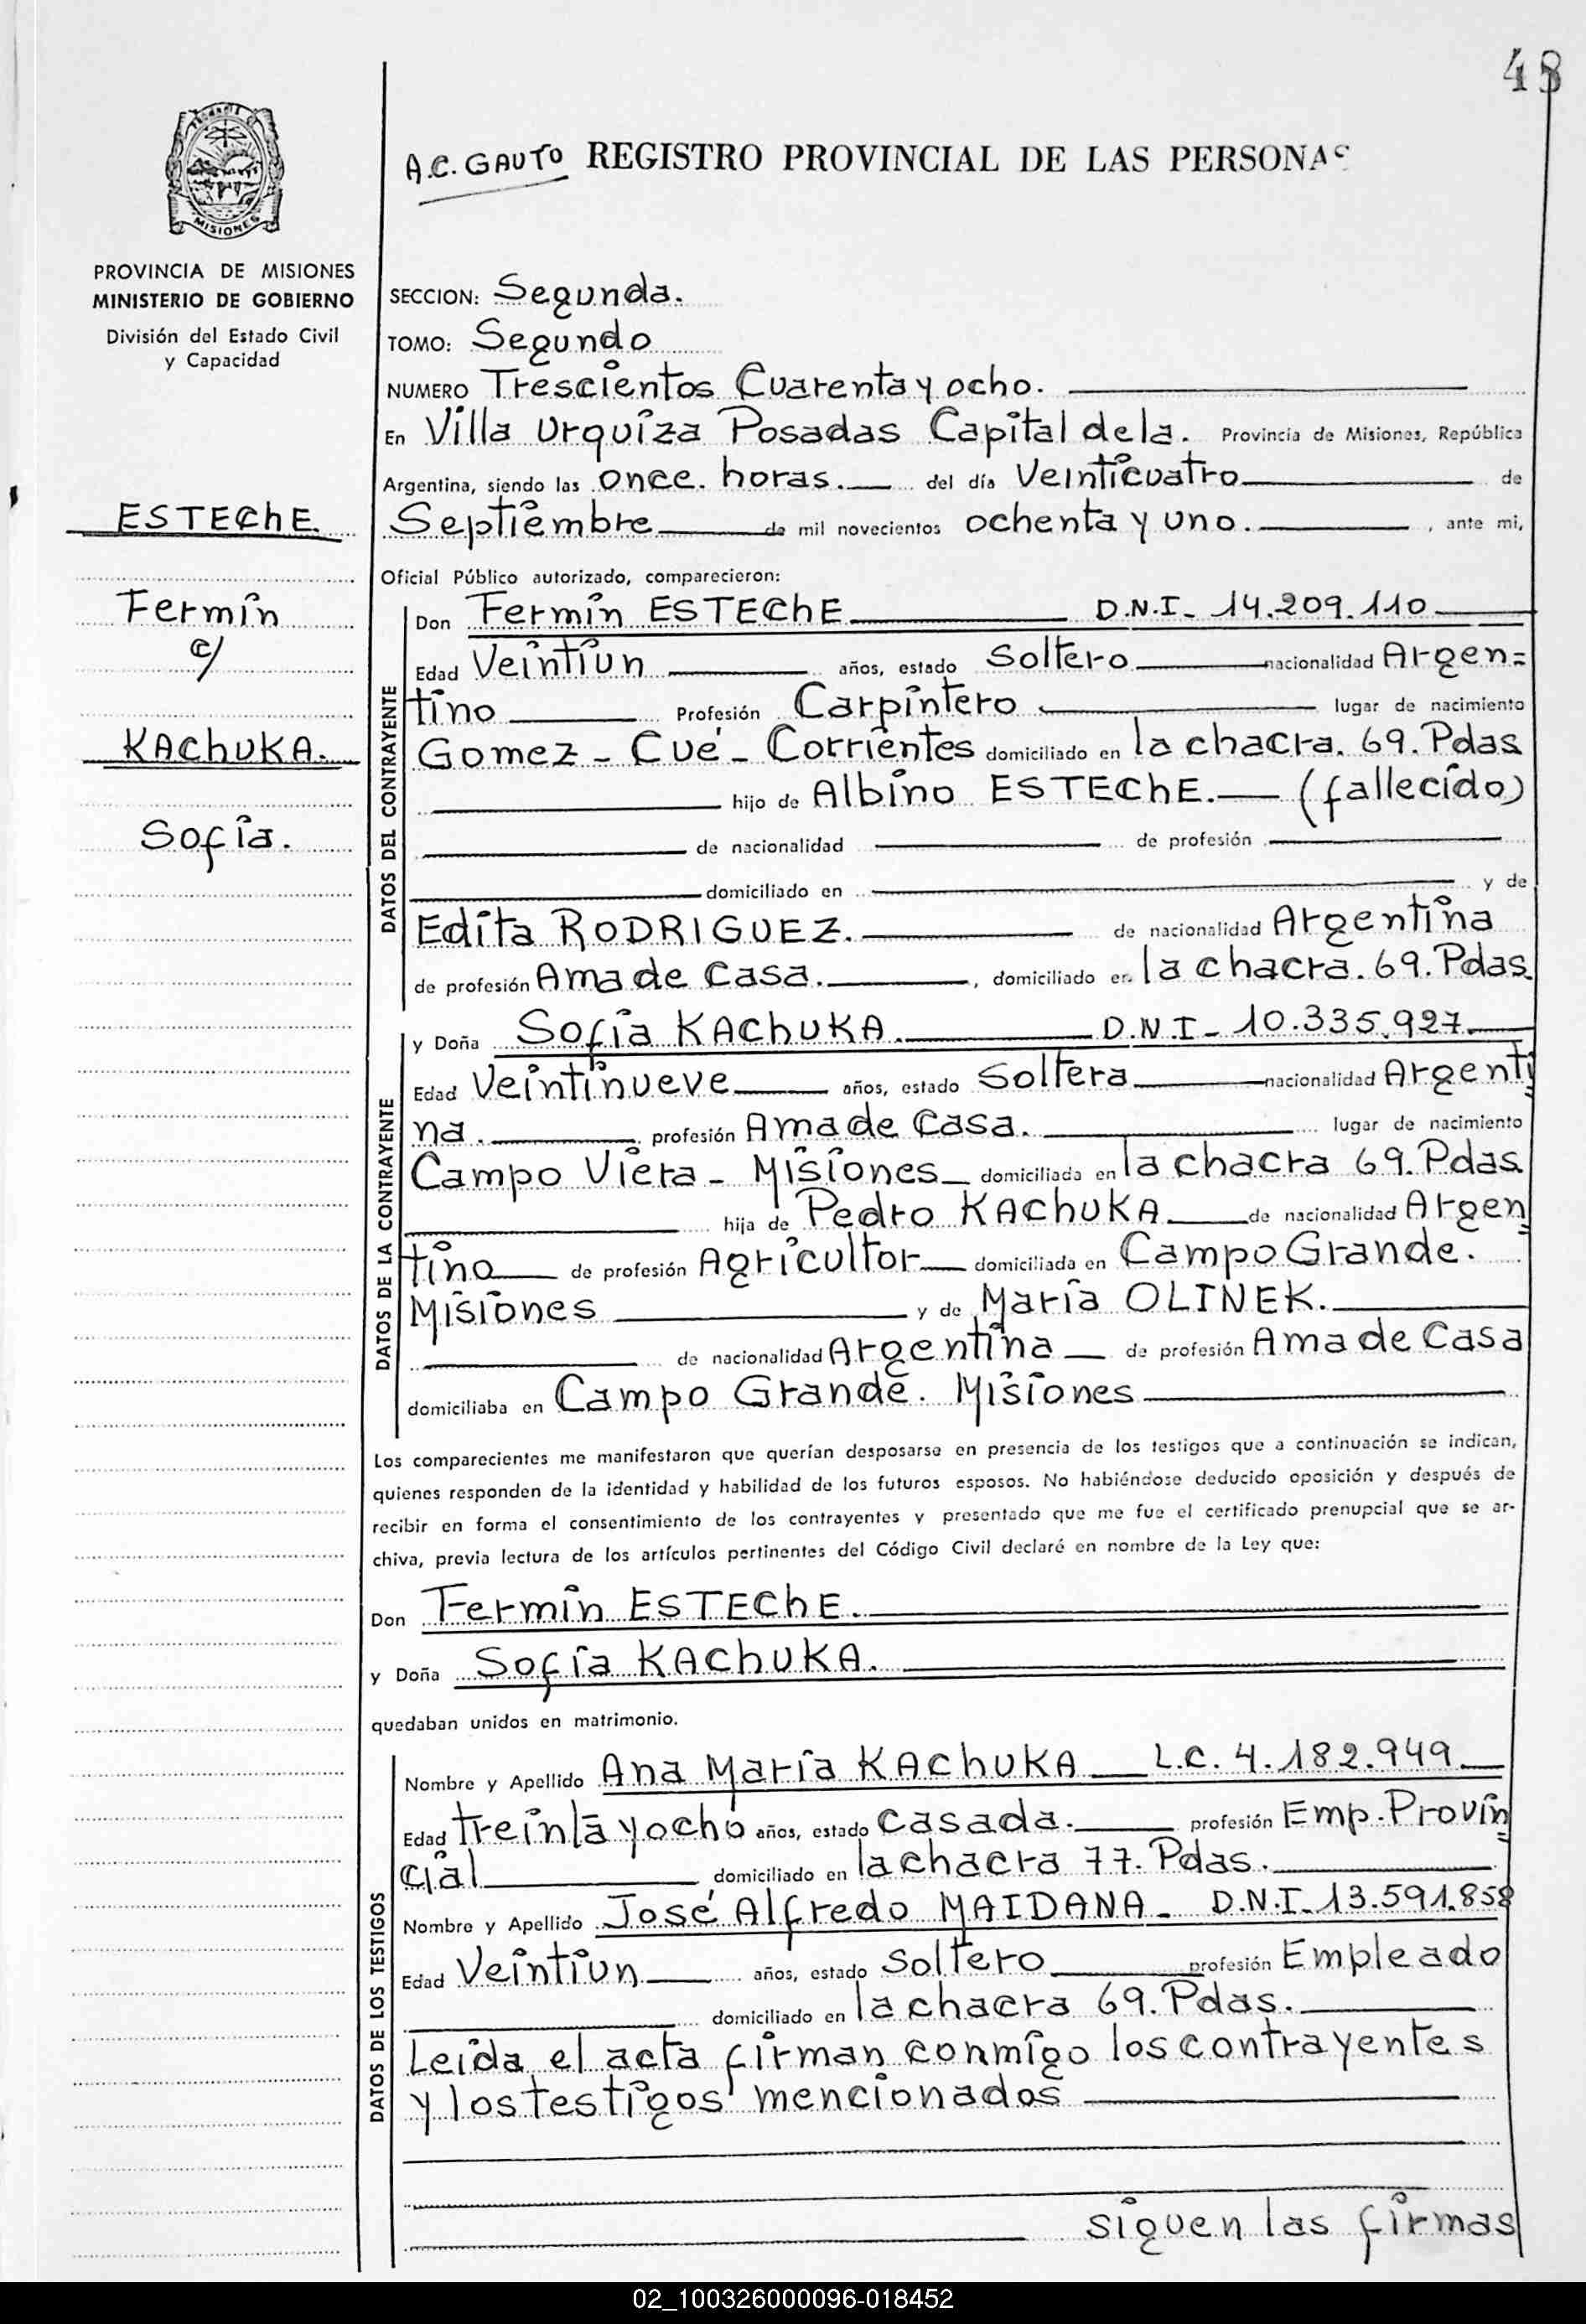 48
A.C. GAUTO REGISTRO PROVINCIAL DE LAS PERSONAS
MISIONES
PROVINCIA DE MISIONES
MINISTERIO DE GOBIERNO
División del Estado Civil
y Capacidad
ESTEChE
Fermín
c/
KAChUKA.
Sofía.
SECCION: Segunda.
TOMO: Segundo
NUMERO Trescientos Cuarenta y ocho.
En Villa Urquiza Posadas Capital de la. Provincia de Misiones, República
Argentina, siendo las once. horas. del día Veinticuatro de
Septiembre de mil novecientos ochenta y uno. , ante mi,
Oficial Público autorizado, comparecieron:
DATOS DEL CONTRAYENTE
Don Fermín ESTEChE D.N.I- 14.209.110
Edad Veintiun años, estado Soltero nacionalidad Argen=
tino Profesión Carpintero lugar de nacimiento
Gomez - Cué - Corrientes domiciliado en la chacra. 69. Pdas
hijo de Albino ESTEChE. (fallecido)
de nacionalidad de profesión
domiciliado en y de
Edita RODRIGUEZ. de nacionalidad Argentina
de profesión Ama de Casa. , domiciliado en la chacra. 69. Pdas.
DATOS DE LA CONTRAYENTE
y Doña Sofía KAChUKA. D.N.I- 10.335.927
Edad Veintinueve años, estado Soltera nacionalidad Argenti
na. profesión Ama de Casa. lugar de nacimiento
Campo Viera - Misiones domiciliada en la chacra 69. Pdas.
hija de Pedro KAChUKA de nacionalidad Argen=
tino de profesión Agricultor domiciliada en Campo Grande.
Misiones y de María OLINEK.
de nacionalidad Argentina de profesión Ama de Casa
domiciliaba en Campo Grande. Misiones
Los comparecientes me manifestaron que querían desposarse en presencia de los testigos que a continuación se indican,
quienes responden de la identidad y habilidad de los futuros esposos. No habiéndose deducido oposición y después de
recibir en forma el consentimiento de los contrayentes y presentado que me fue el certificado prenupcial que se ar-
chiva, previa lectura de los artículos pertinentes del Código Civil declaré en nombre de la Ley que:
Don Fermín ESTEChE.
y Doña Sofía KAChUKA.
quedaban unidos en matrimonio.
DATOS DE LOS TESTIGOS
Nombre y Apellido Ana María KAChUKA L.C. 4.182.949
Edad treinta y ocho años, estado Casada. profesión Emp. Provin=
cial domiciliado en la chacra 77. Pdas.
Nombre y Apellido José Alfredo MAIDANA - D.N.I- 13.591.858
Edad Veintiun años, estado Soltero profesión Empleado
domiciliado en la chacra 69. Pdas.
Leida el acta firman conmigo los contrayentes
y los testigos mencionados
siguen las firmas
02_100326000096-018452